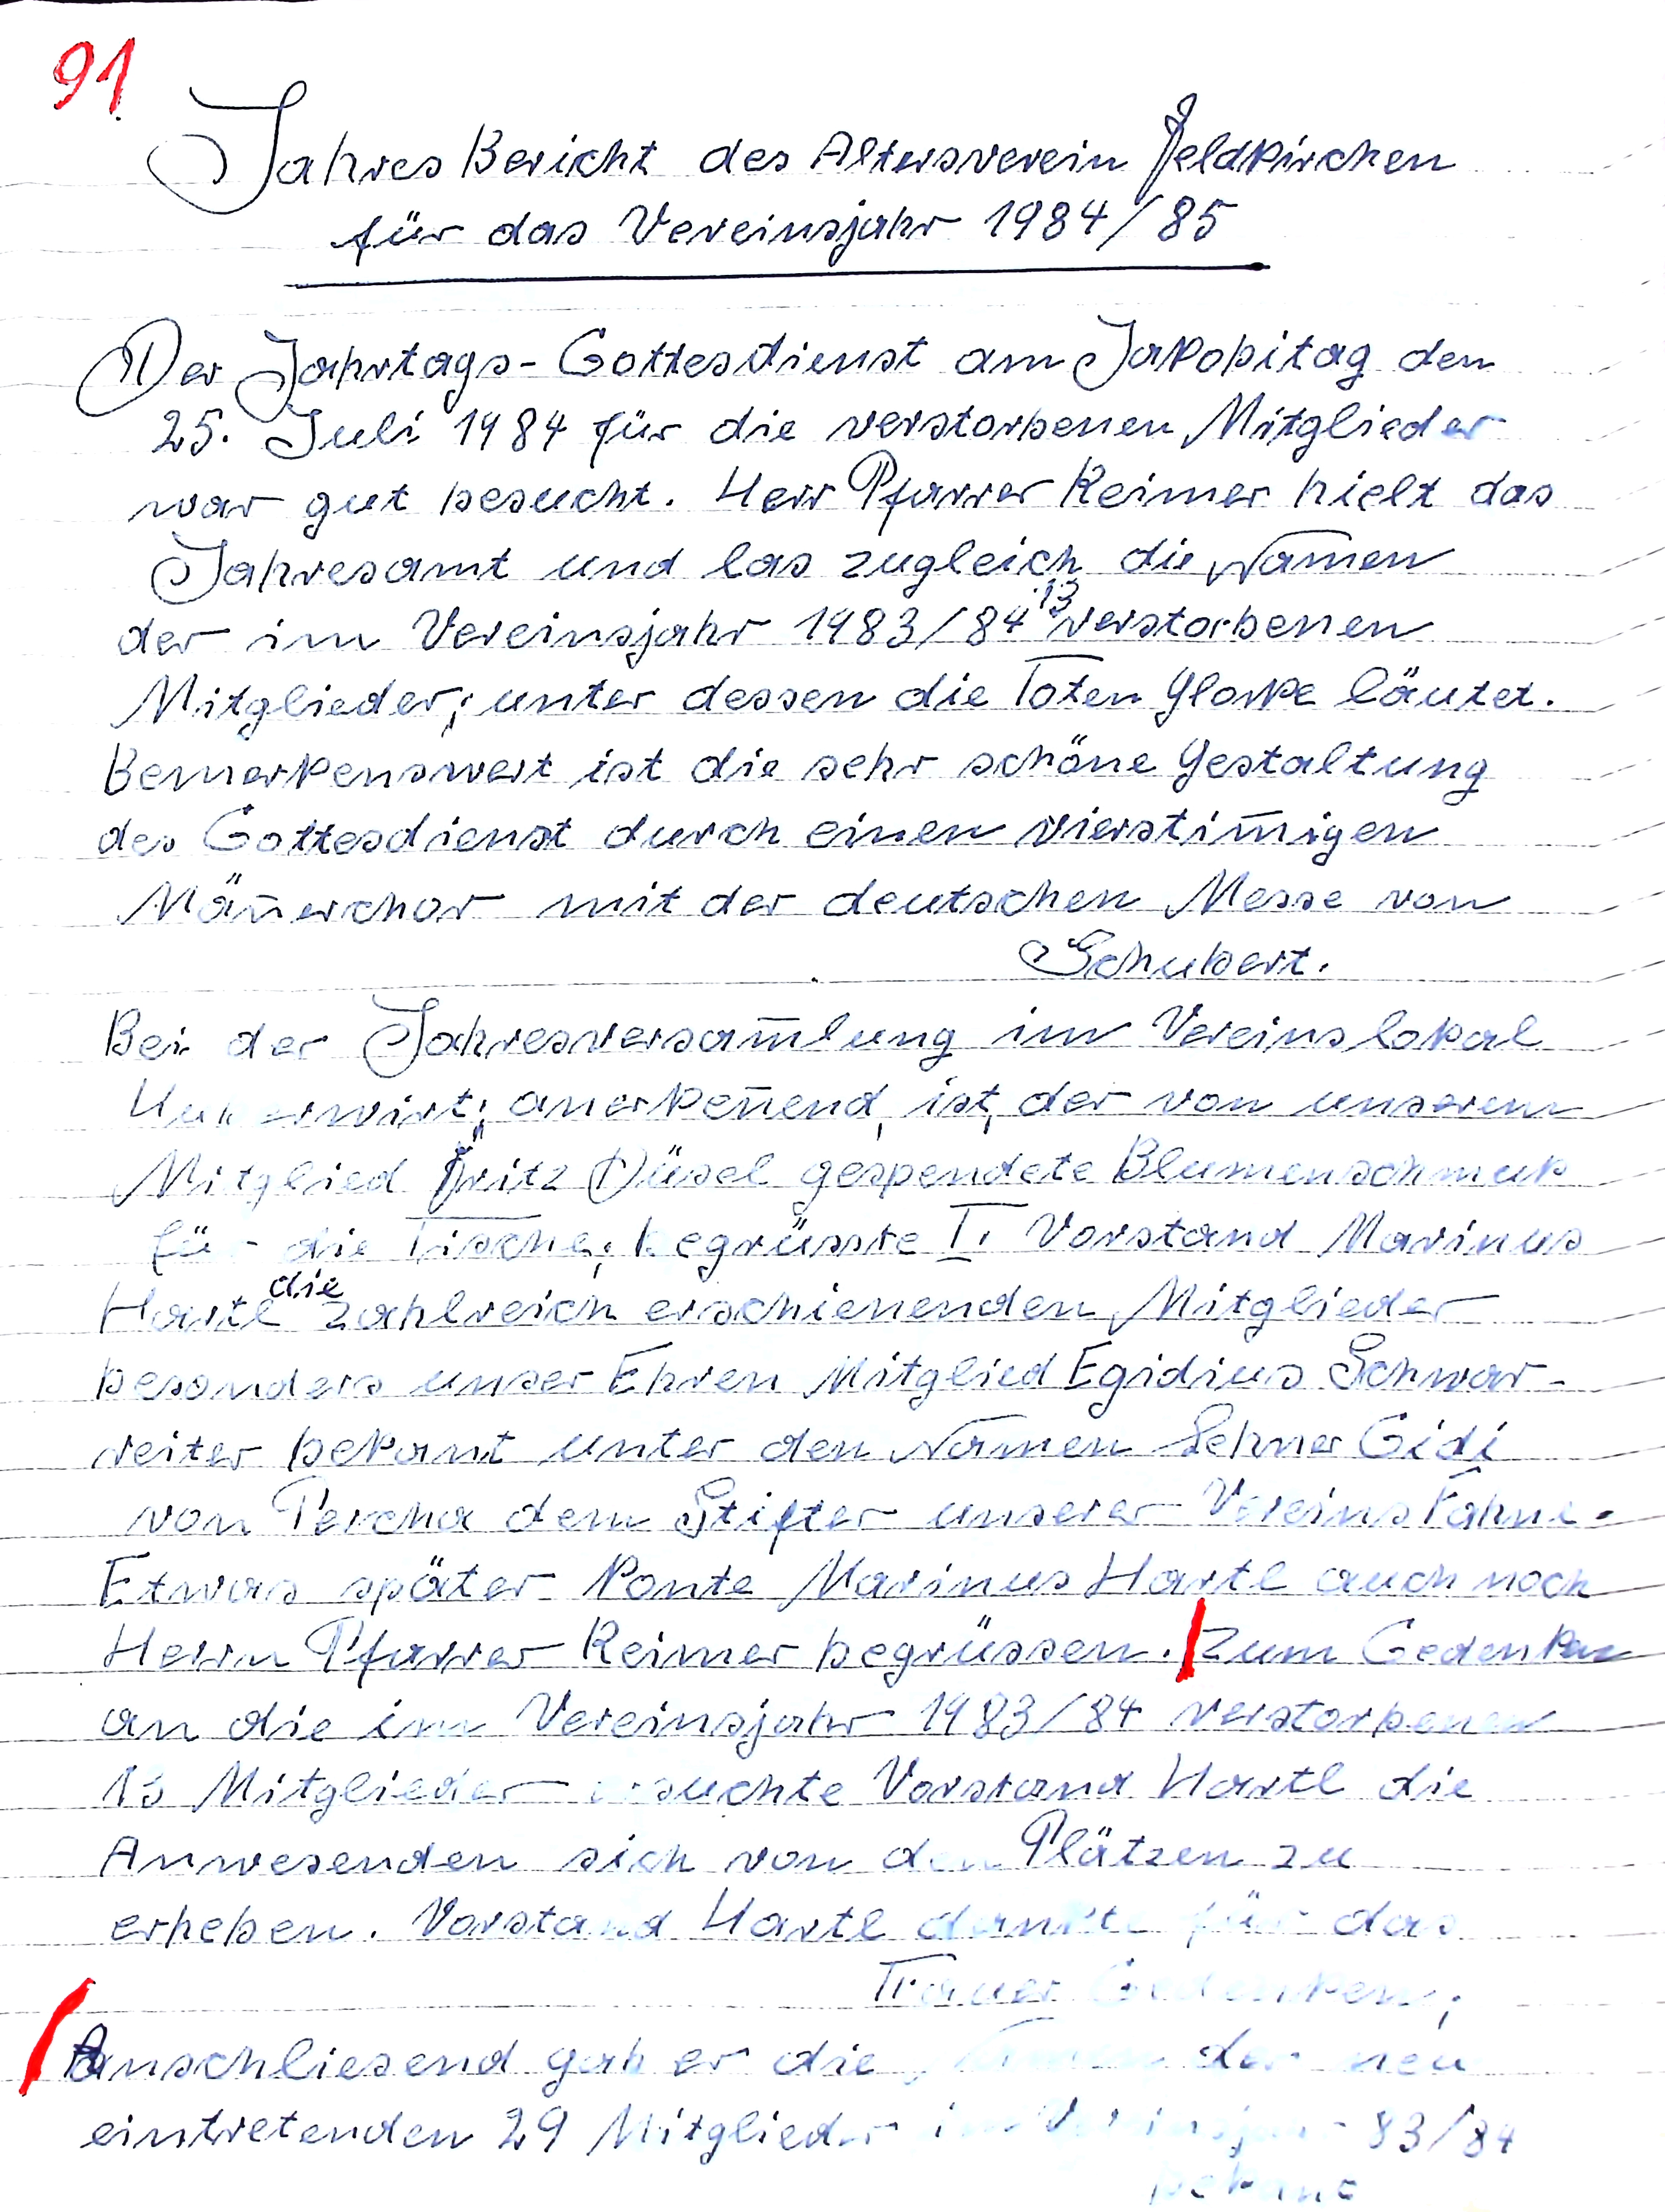 91.
Jahres Bericht des Altersverein Feldkirchen
für das Vereinsjahr 1984/85
Der Jahrtags-Gottesdienst am Jakobitag den
25. Juli 1984 für die verstorbenen Mitglieder
war gut besucht. Herr Pfarrer Reimer hielt das
Jahresamt und las zugleich die Namen
der im Vereinsjahr 1983/84 13 verstorbenen
Mitglieder; unter dessen die Toten Glocke läutet.
Bemerkenswert ist die sehr schöne Gestaltung
des Gottesdienst durch einen vierstim̄igen
Män̄erchor mit der deutschen Messe von
Schubert.
Bei der Jahresversam̄lung im Vereinslokal
anerken̄end, ist, der von unserem
Mitglied Fritz Düsel gespendete Blumenschmuk
für die Tische; begrüsste I. Vorstand Marinus
Hartl die zahlreich erschienenden Mitglieder
besonders unser Ehren Mitglied Egidius Schwar-
reiter bekant unter den Namen Lehner Gidi
von Percha dem Stifter unserer Vereinsfahne.
Etwas später konte Marinus Hartl auch noch
Herrn Pfarrer Reimer begrüssen. Zum Gedenken
an die im Vereinsjahr 1983/84 verstorbenen
13 Mitglieder ersuchte Vorstand Hartl die
Anwesenden sich von den Plätzen zu
erheben. Vorstand Hartl dankte für das
Trauer Gedenken;
Anschliesend gab er die Namen der neu
eintretenden 29 Mitglieder im Vereinsjahr 83/84
bekant